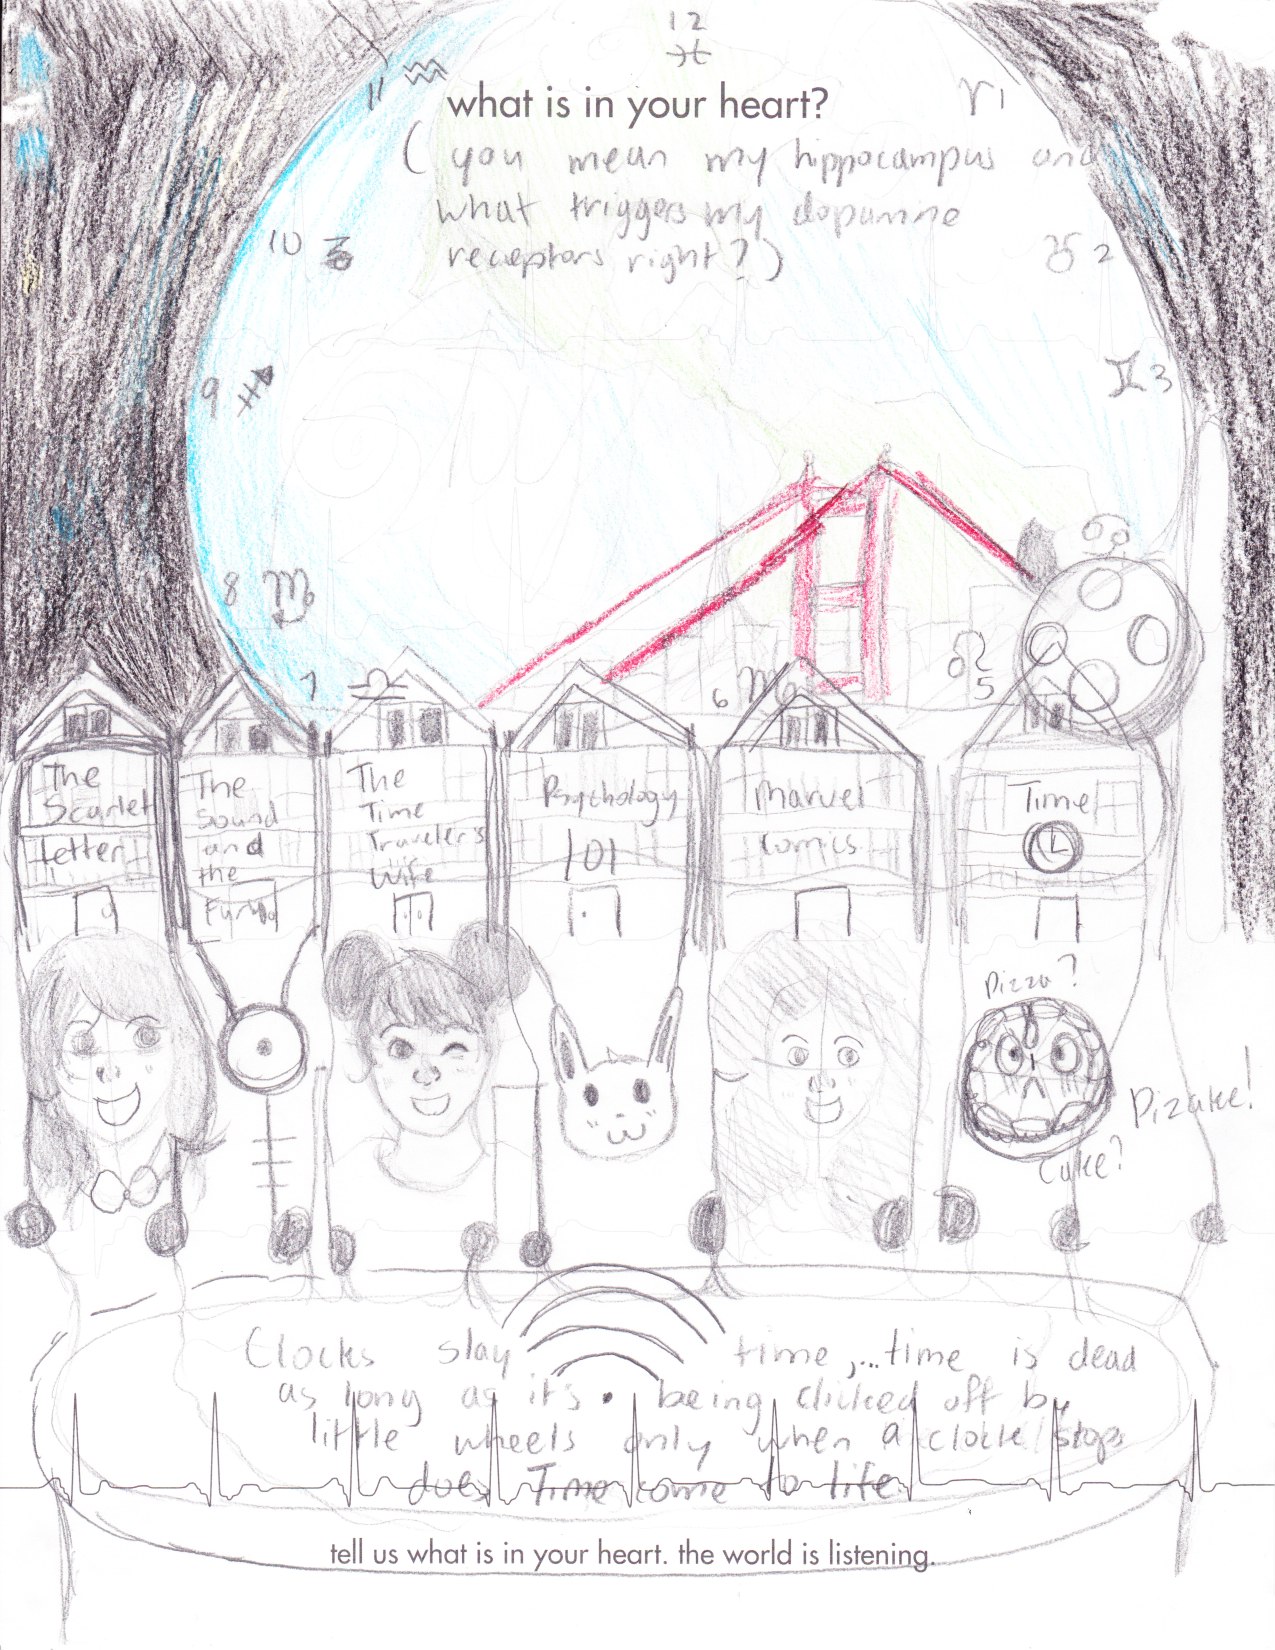 12
♓
11 ♒
what is in your heart?
♈ 1
( you mean my hippocampus and
what triggers my dopamine
receptors right? )
10 ♑
♉ 2
9 ♐
♊ 3
♋
8 ♏
7 ♎
6 ♍
♌
5
The
Scarlet
Letter
The
Sound
and
the
Fury
The
Time
Traveler's
Wife
Psychology
101
Marvel
Comics
Time
Pizza?
Pizake!
Cake?
Clocks slay time,...time is dead
as long as it's being clicked off by
little wheels only when a clock stops
does Time come to life
tell us what is in your heart. the world is listening.